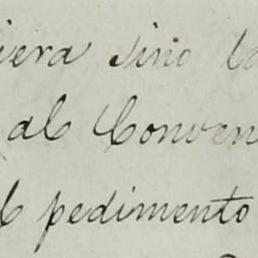 iera sino lo
al Conven
l pedimento